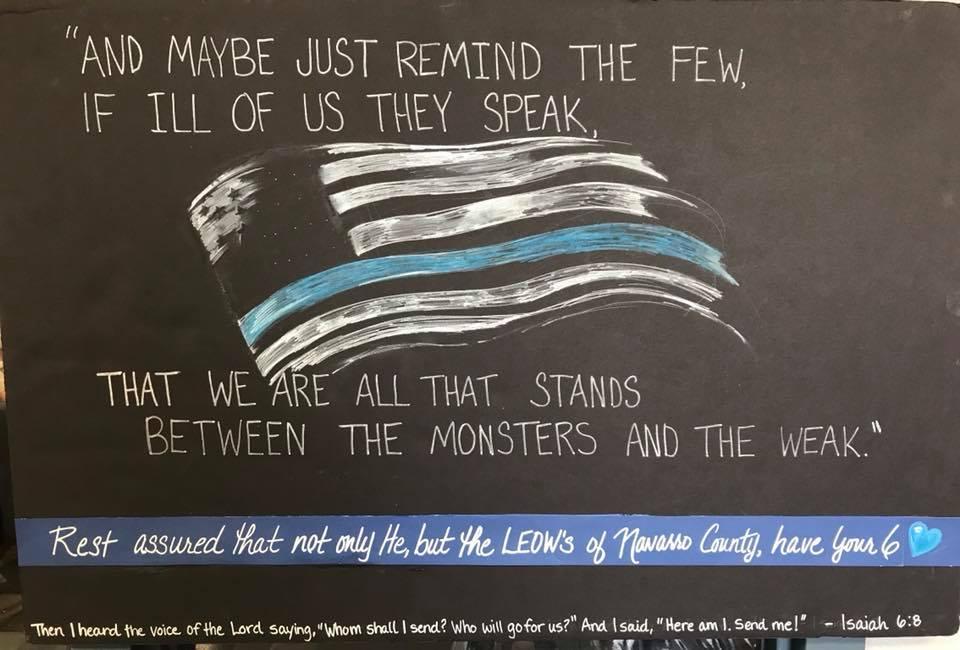 "AND MAYBE JUST REMIND THE FEW,
IF ILL OF US THEY SPEAK,
THAT WE ARE ALL THAT STANDS
BETWEEN THE MONSTERS AND THE WEAK."
Rest assured that not only He, but the LEOW's of Navasso County, have your 6
Then I heard the voice of the Lord saying, "Whom shall I send? Who will go for us?" And I said, "Here am I. Send me!" - Isaiah 6:8